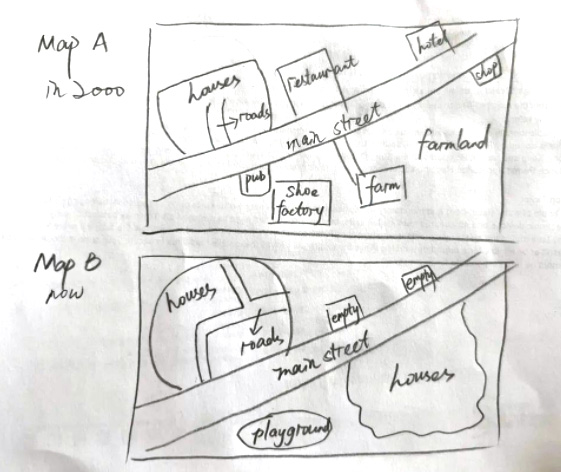 Map A
in 2000
houses
roads
restaurant
hotel
shop
main street
farmland
pub
shoe
factory
farm
Map B
now
houses
roads
empty
empty
main street
houses
playground